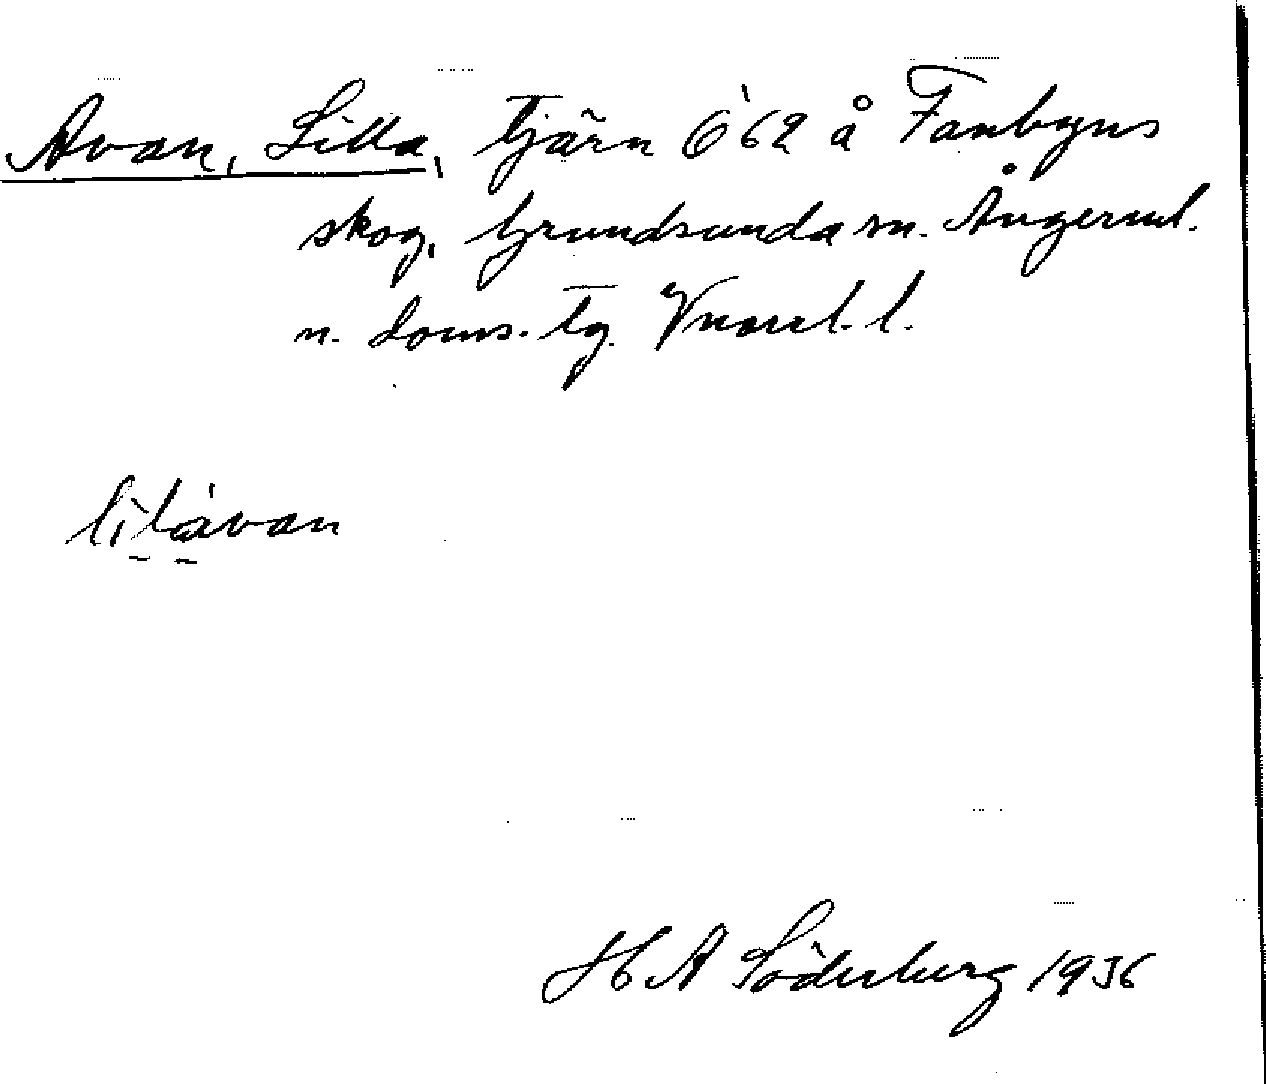 Avan, Lilla, Tjärn Ö 62 å Fanbyns
skog, Grundsunda sn. Ångerml.
n. doms. Tg. Vnorrl. l.
lìtàvan
H A Söderberg 1936